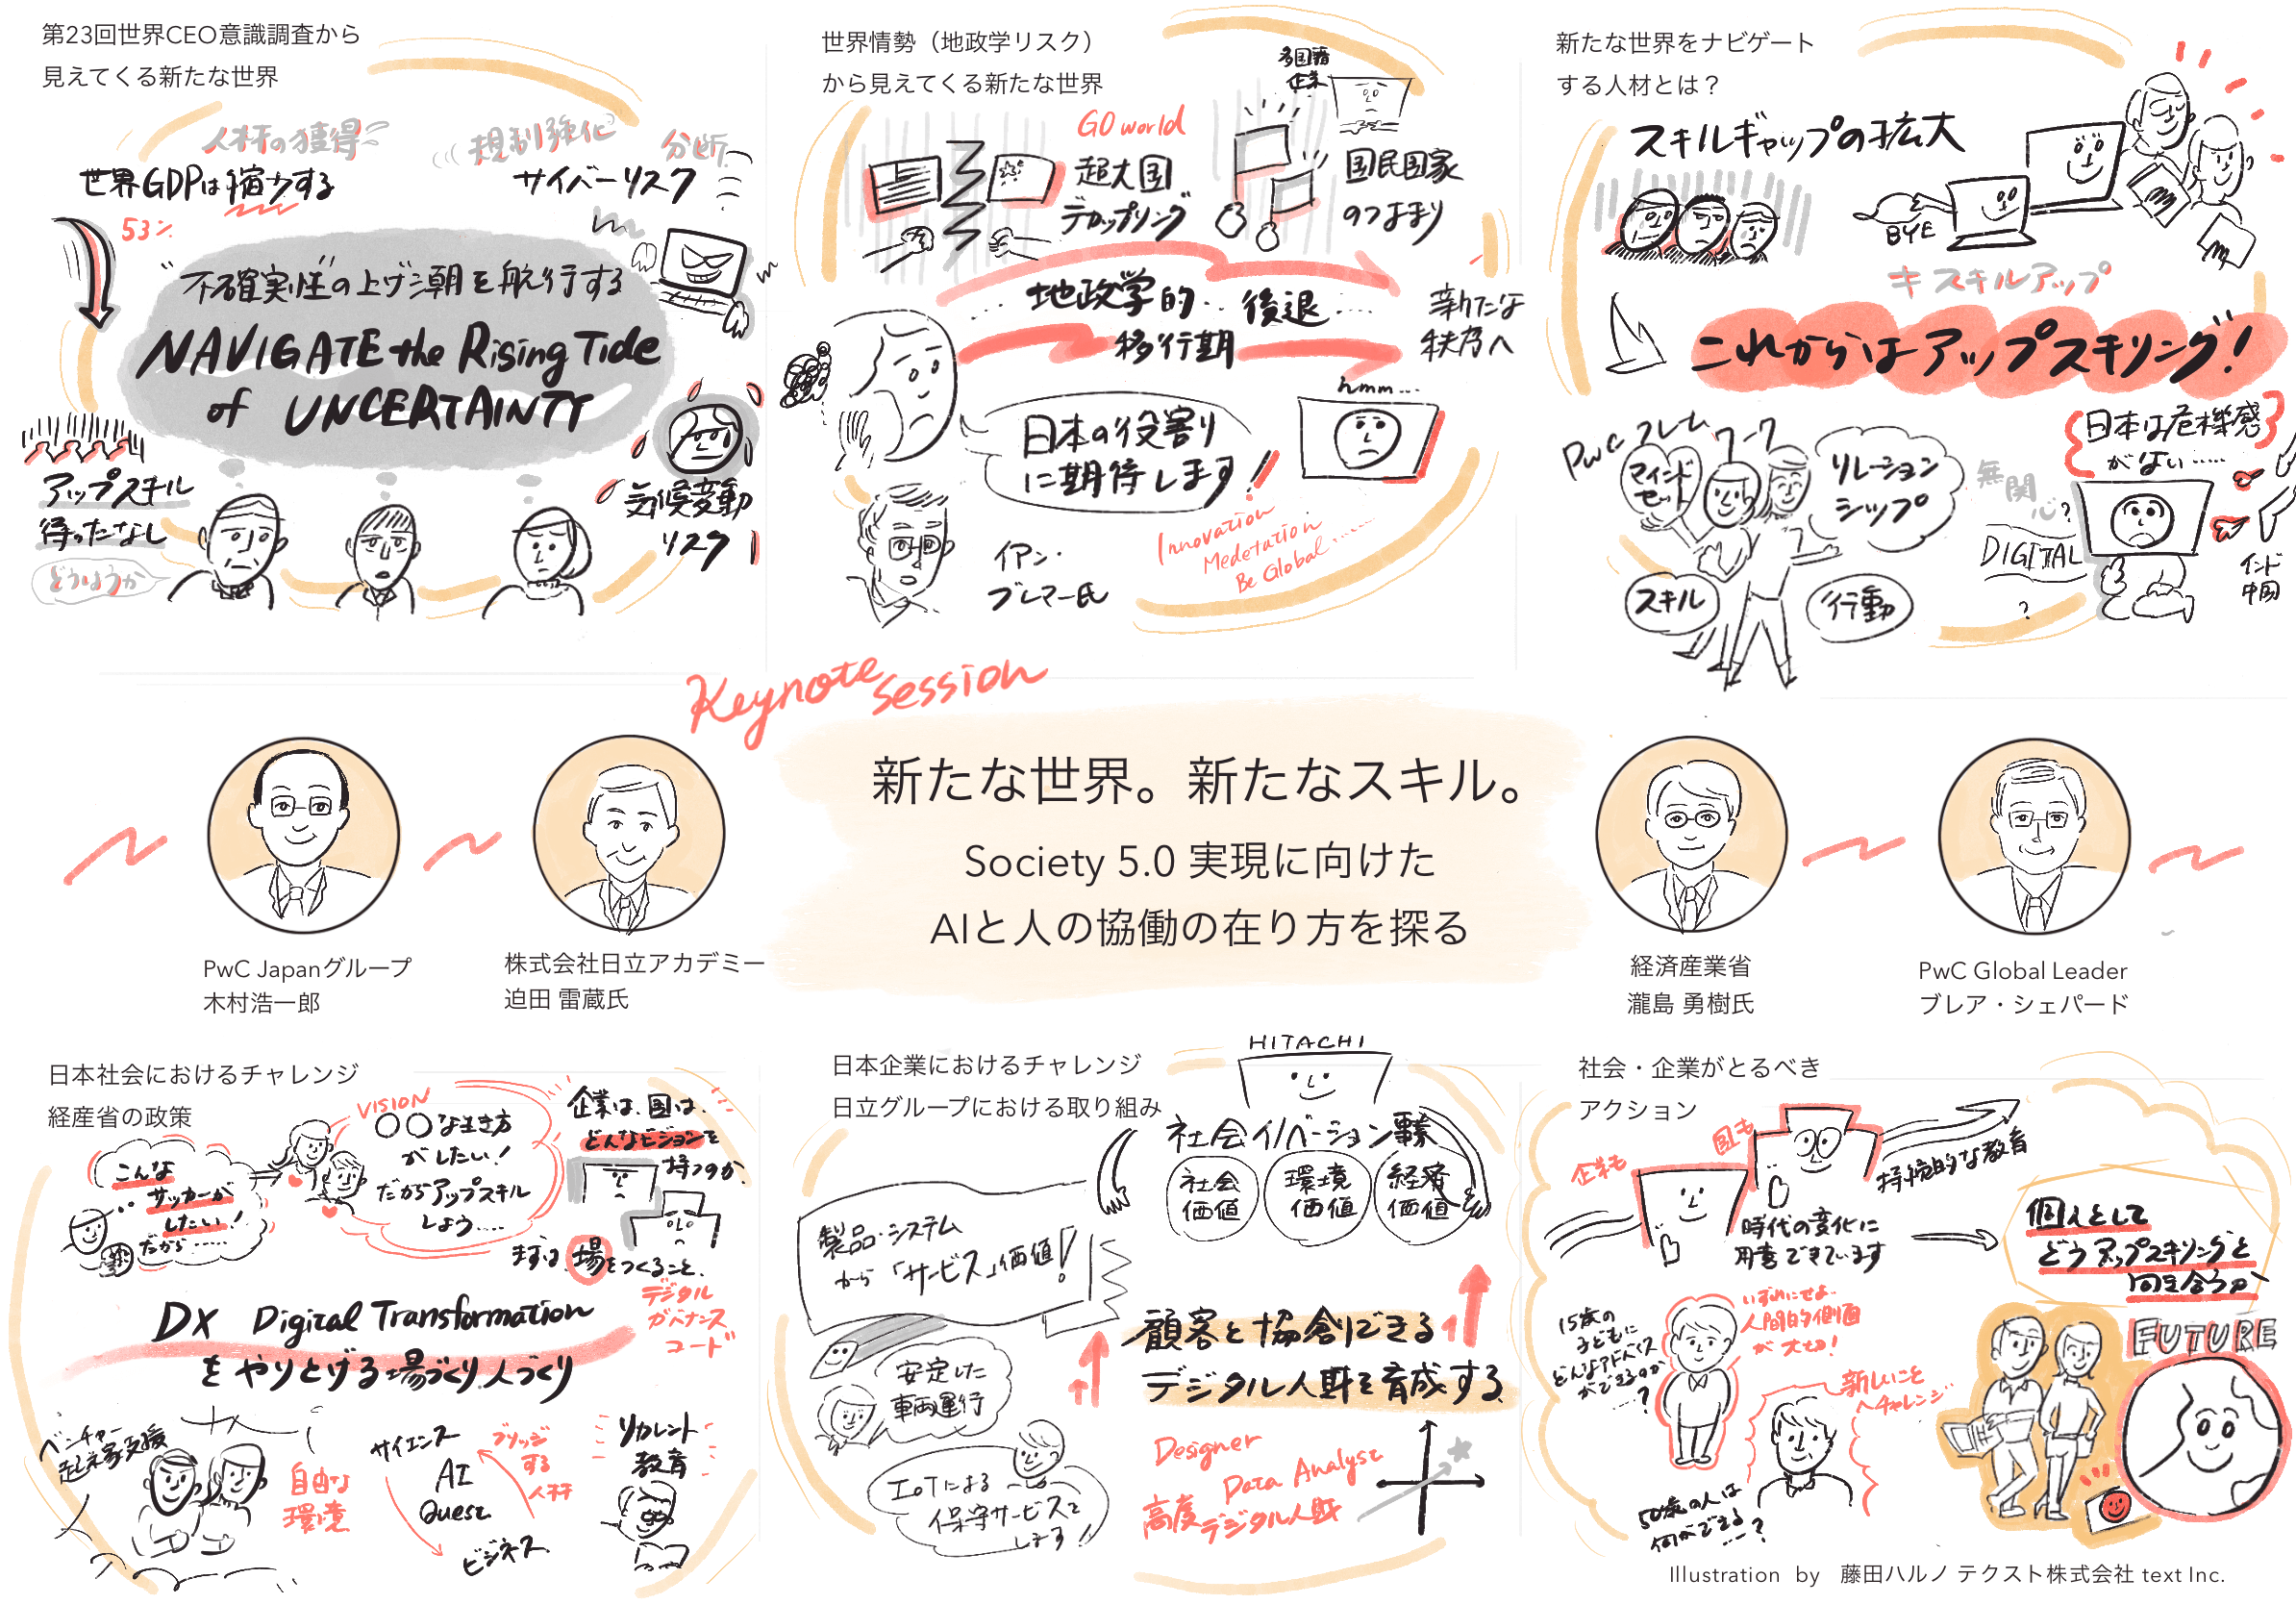 第23回世界CEO意識調査から
見えてくる新たな世界
人材の獲得
規制強化
分断
世界GDPは縮小する
サイバーリスク
53%
"不確実性"の上げ潮を航行する
NAVIGATE the Rising Tide
of UNCERTAINTY
アップスキル
待ったなし
どうしようか
気候変動
リスク
世界情勢（地政学リスク）
から見えてくる新たな世界
多国籍
企業
G0 world
超大国
デカップリング
国民国家
のつよまり
地政学的 後退
移行期
新たな
秩序へ
hmm...
日本の役割り
に期待します!
イアン・
ブレマー氏
Innovation
Medetation
Be Global......
新たな世界をナビゲート
する人材とは？
スキルギャップの拡大
BYE
キ スキルアップ
これからはアップスキリング!
PwCフレームワーク
マインド
セット
リレーション
シップ
スキル
行動
日本は危機感
がない……
無関心?
DIGITAL
?
インド
中国
Keynote session
新たな世界。新たなスキル。
Society 5.0 実現に向けた
AIと人の協働の在り方を探る
PwC Japanグループ
木村浩一郎
株式会社日立アカデミー
迫田 雷蔵氏
経済産業省
瀧島 勇樹氏
PwC Global Leader
ブレア・シェパード
日本社会におけるチャレンジ
経産省の政策
こんな
サッカーが
したい!
だから……
VISION
〇〇な生き方
がしたい!
だからアップスキル
しよう……
企業は、国は、
どんなビジョンを
持つのか
まずは場をつくること、
デジタル
ガバナンス
コード
DX Digital Transformation
をやりとげる場づくり、人づくり
ベンチャー
起業家支援
自由な
環境
サイエンス
AI
Quest
ビジネス
ブリッジ
する
人材
リカレント
教育
日本企業におけるチャレンジ
日立グループにおける取り組み
HITACHI
社会イノベーション事業
社会
価値
環境
価値
経済
価値
製品・システム
から「サービス」価値!
安定した
車両運行
IoTによる
保守サービスを
します!
顧客と協創できる
デジタル人財を育成する
Designer
Data Analyst
高度デジタル人財
社会・企業がとるべき
アクション
企業も
国も
持続的な教育
時代の変化に
用意できています
個人として
どうアップスキリングと
向き合うか
15歳の
子どもに
どんなアドバイス
ができるのか
…?
いずれにせよ
人間的側面
が大切!
新しいこと
へチャレンジ
50歳の人は
何ができる
…?
FUTURE
Illustration by 藤田ハルノ テクスト株式会社 text Inc.